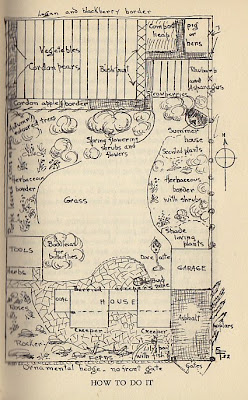 Logan and blackberry border
Compost
heap
pig
or
hens
Vegetables
Cordon pears
Bush fruit
Rhubarb
and
Asparagus
Strawberries
Cordon apple border
Flowering trees
Spring flowering
shrubs and
flowers
Summer
house
Scented plants
Herbaceous
border
Herbaceous
border
with shrubs
Grass
Shade
loving
plants
TOOLS
Buddleias for
butterflies
Dove
cote
Herbs
GARAGE
COAL
HOUSE
Vines
Creeper
Creeper
Asphalt
Rocker
Ferns
Lily
Ornamental hedge - no front gate
Gates
HOW TO DO IT